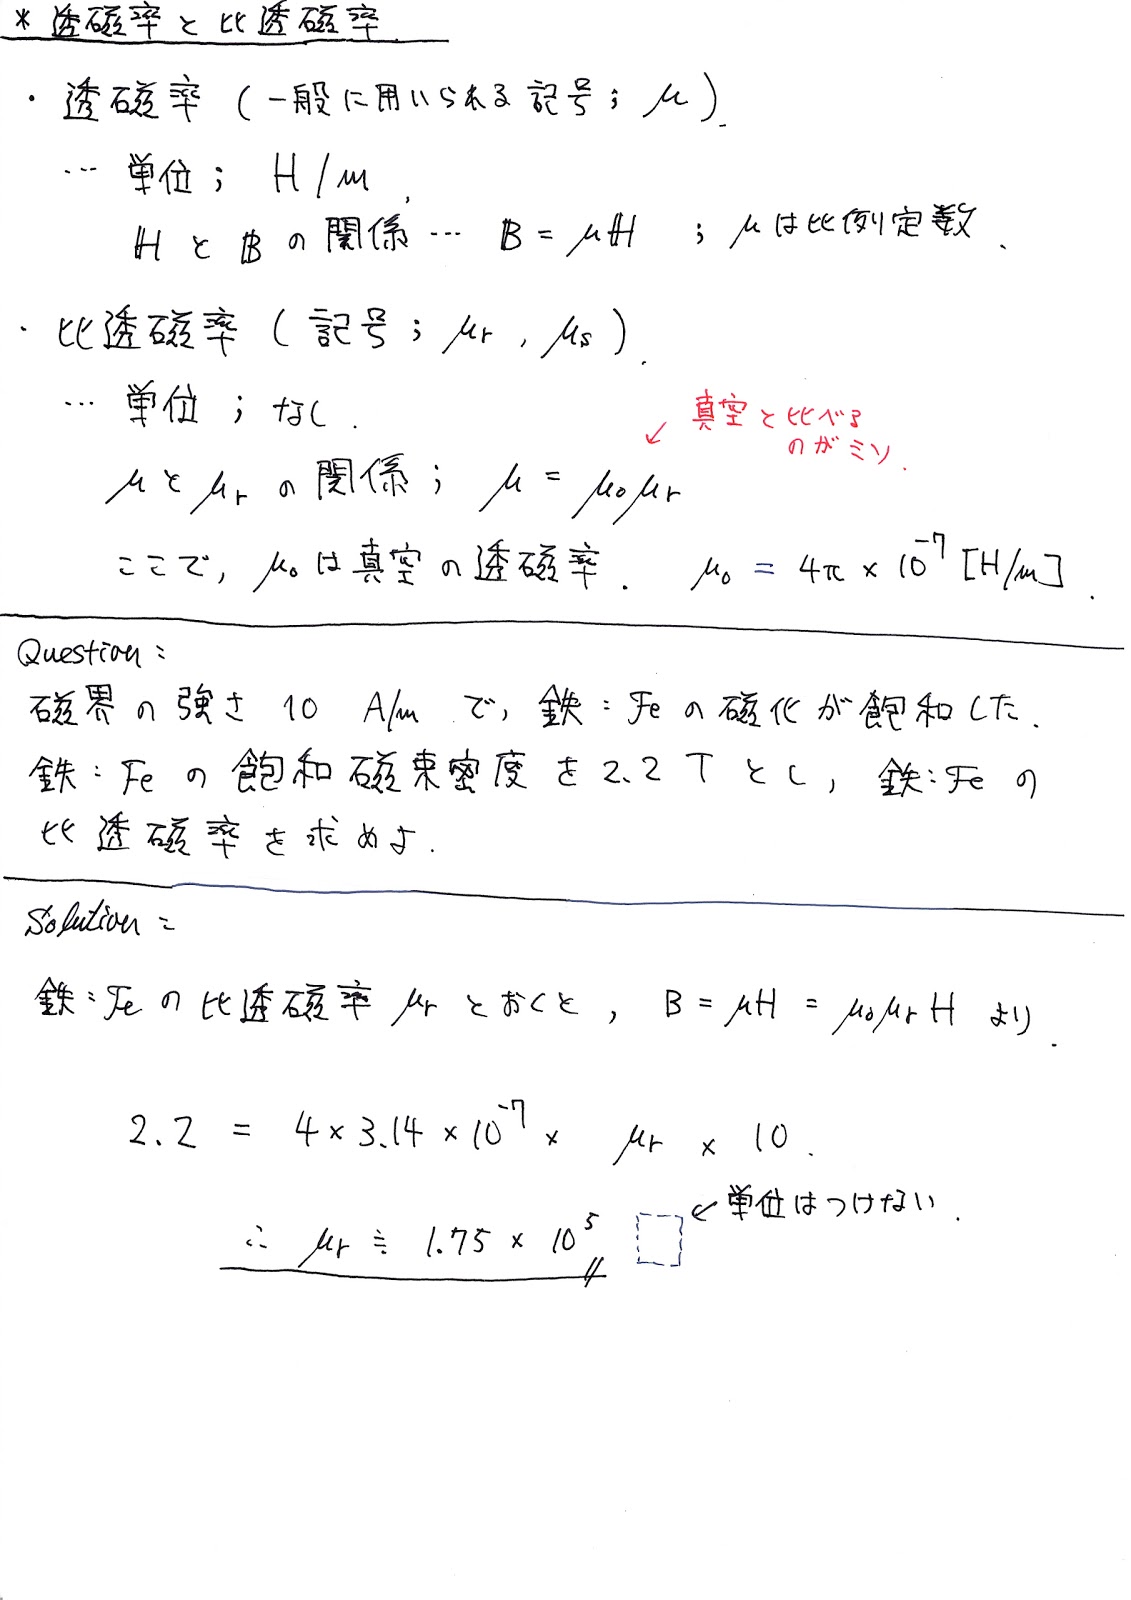 * 透磁率と比透磁率
・透磁率 (一般に用いられる記号; μ).
… 単位; H/m.
HとBの関係… B = μH ; μは比例定数.
・比透磁率 (記号; μr, μs).
… 単位; なし.
真空と比べる
のがミソ.
↙
μとμrの関係; μ = μ₀μr
ここで, μ₀は真空の透磁率. μ₀ = 4π × 10⁻⁷ [H/m].
Question:
磁界の強さ 10 A/m で, 鉄:Feの磁化が飽和した.
鉄:Feの飽和磁束密度を2.2 Tとし, 鉄:Feの
比透磁率を求めよ.
Solution:
鉄:Feの比透磁率μrとおくと, B = μH = μ₀μrH より.
2.2 = 4 × 3.14 × 10⁻⁷ × μr × 10.
←単位はつけない.
∴ μr ≒ 1.75 × 10⁵